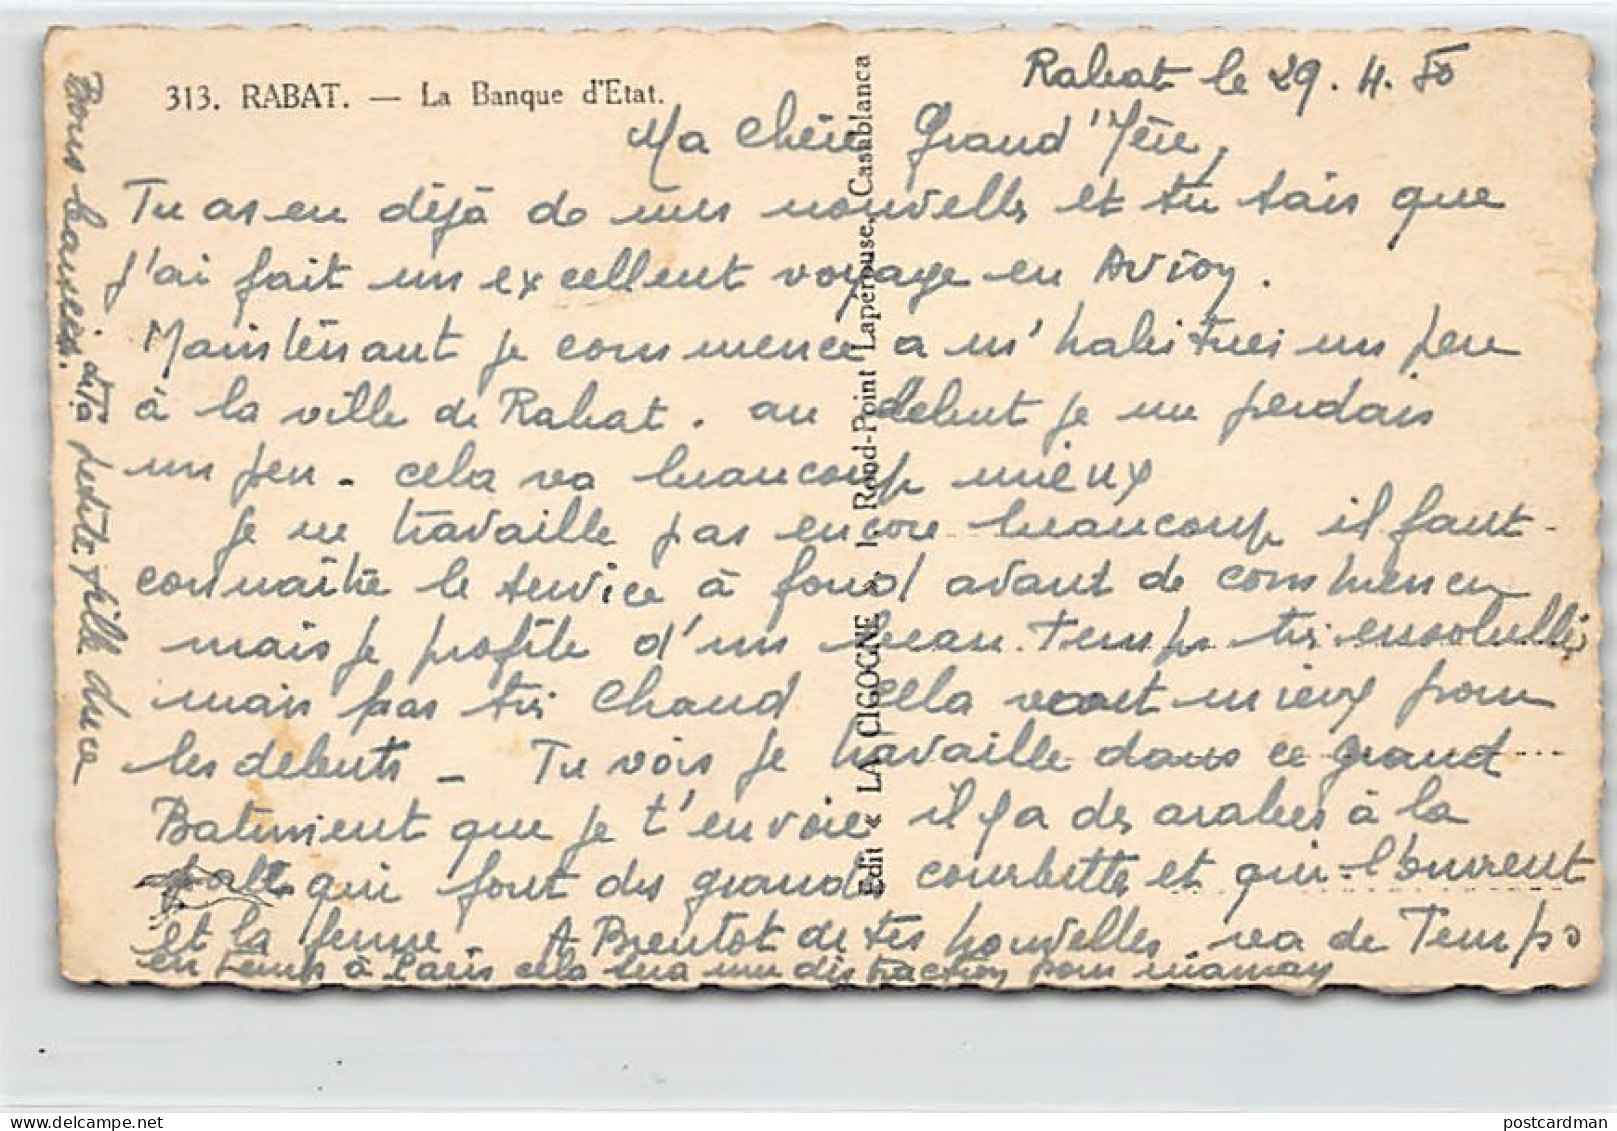 313. RABAT. — La Banque d'Etat.
Rabat le 29.4.50
Ma Chère Grand'Mère,
Tu as eu déjà de mes nouvelles et tu sais que
j'ai fait un excellent voyage en Avion.
Maintenant je commence a m'habituer un peu
à la ville de Rabat. au début je me perdais
un peu - cela va beaucoup mieux
Je ne travaille pas encore beaucoup il faut
connaître le service à fond avant de commencer
mais je profite d'un beau Temps très ensoleillé
mais pas très Chaud cela vaut mieux pour
les debuts - Tu vois je travaille dans ce grand
Batiment que je t'envoie il y a des arabes à la
porte qui font des grandes courbettes et qui l'ouvrent
et la ferme. A Bientot de tes nouvelles. va de Temps
en temps à Paris cela sera une distraction pour maman
Bons baisers. ta petite fille
Edit « LA CIGOGNE », 1, Rond-Point Lapérouse, Casablanca
postcardman